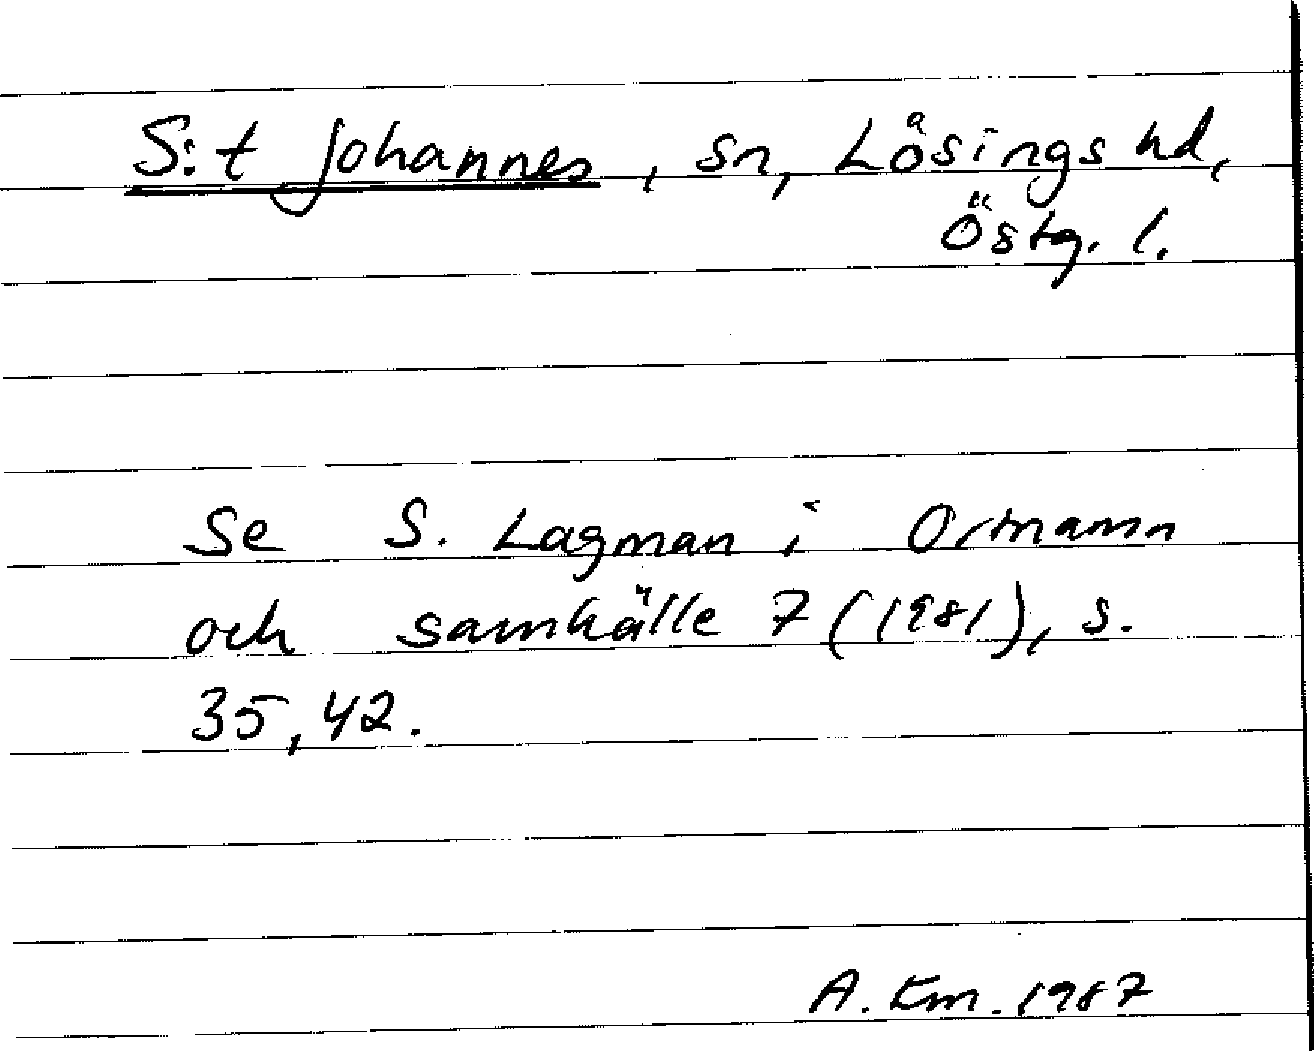 S:t Johannes, sn, Lösings hd,
Östg. l.
Se S. Lagman i Ortnamn
och samhälle 7 (1981), s.
35, 42.
A. Km. 1987